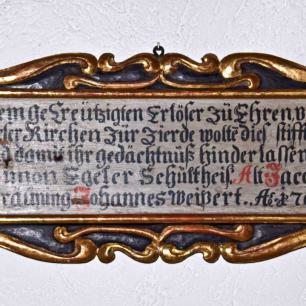 em ge Creützigten Erlöser Zu Ehren v
ler Kirchen Zur Zierde wolte dies stift
damit ihr gedächtnüß hinderlassen
Egeler Schultheiß Alt Jaco
Johannes Weipert